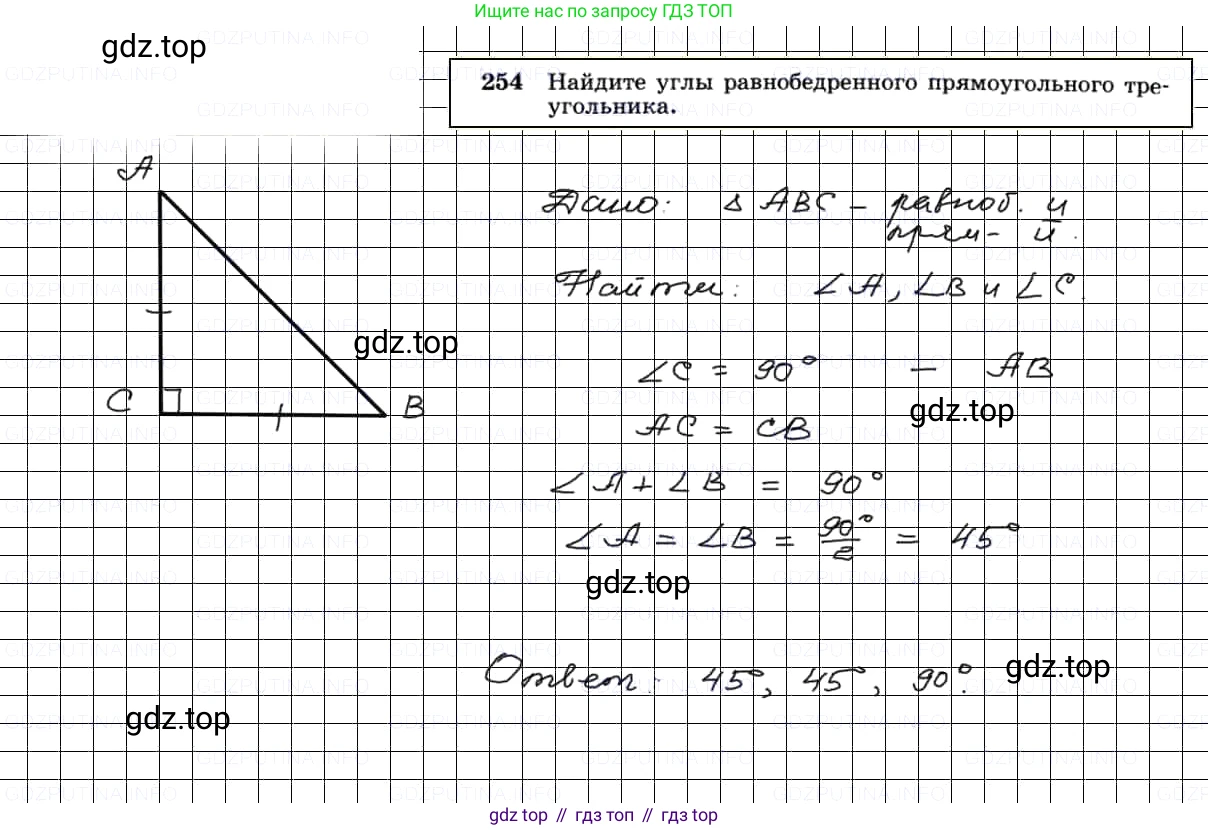 Ищите нас по запросу ГДЗ ТОП
gdz.top
254 Найдите углы равнобедренного прямоугольного тре-
угольника.
A
C
B
gdz.top
Дано: △ ABC – равноб. и
прям- й.
Найти: ∠A, ∠B и ∠C.
∠C = 90° – AB
gdz.top
AC = CB
∠A + ∠B = 90°
∠A = ∠B = 90°/2 = 45°
gdz.top
Ответ: 45°, 45°, 90°.
gdz.top
gdz.top
GDZPUTINA.INFO
gdz top // гдз топ // гдз top